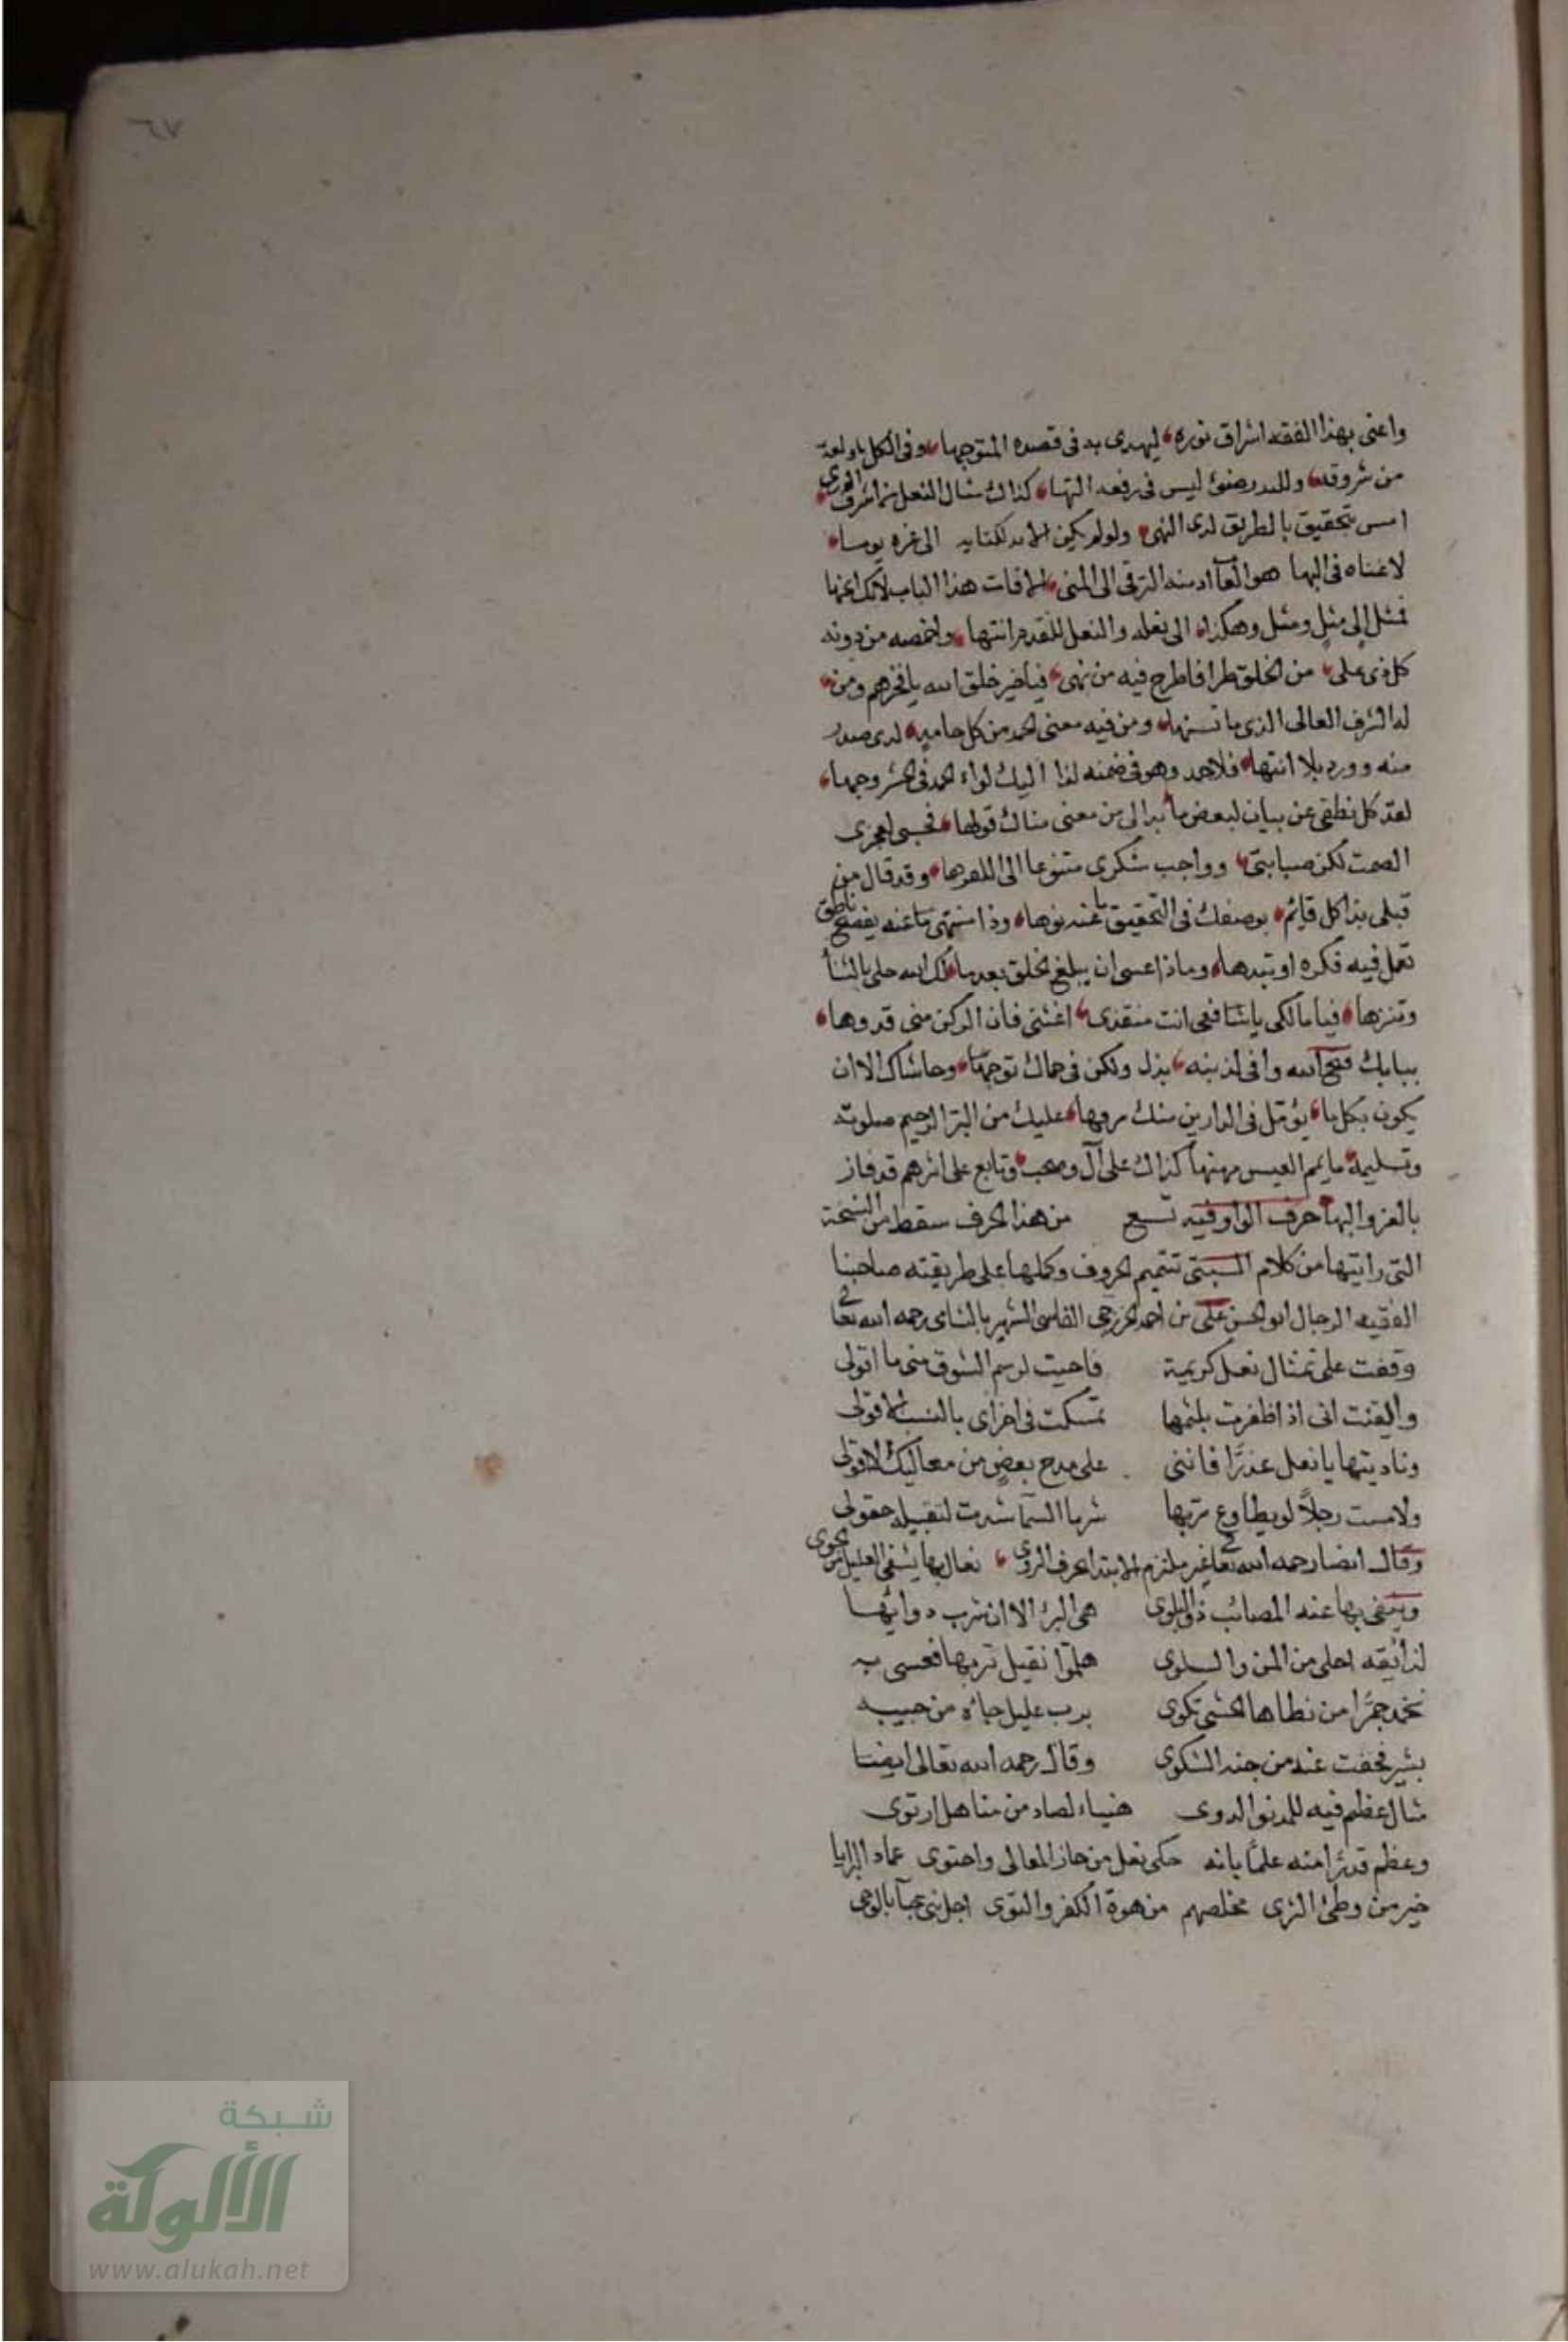 ٦٧
واعنى بهذا الفقه اشراق نوره ليهدى به فى قصده المتوجها وفى الكل باد لعة
من شروقه وللبدر ضوئ ليس فى رفعه انتها كذاك مثال النعل اشرف الورى
امس بتحقيق بالطريق لدى النهى ولو لم يكن الى غره يوما
لاغناه فى البها هو الباب منه الترقى الى المنى هذا الباب لانك
فمثل الى مثل ومثل وهكذا الى نعله والنعل للقدم انتها واخمصه من دونه
كل ذى على من الخلق طرا فاطرح فيه من نهى فيا خير خلق الله يا فخرهم ومن
له الشرف العالى الذى ما تسنها ومن فيه معنى الحمد من كل حامد لدى صدر
منه وورد بلا انتها فلا حمد وهو فى ضمنه لذا اليك لواء الحمد فى الحشر وجها
لقد كل نطقى عن بيان لبعض ما بدا لى من معنى مناك قولها فحسبى لعجزى
الصمت لكن صبابتى وواجب شكرى متنوعا الى وقد قال من
قبلى بذا كل قايم بوصفك فى التحقيق ما عنه نوها وذا منتهى ما عنه يفصح ناطق
تعمل فيه فكره او تبدها وماذا عسى ان يبلغ الخلق بعد ما لك الله حلى بالثنا
وتنزها فيا مالكى يا شافعى انت منقذى اغثنى فان الركن منى قد وها
ببابك فتح الله وافى لذنبه بذل ولكن فى حماك توجها وحاشاك الا ان
يكون بكل ما يؤمل فى الدارين منك مرفها عليك من البر الرحيم صلوته
وتسليمه ما يمم العيس مهمها كذاك على آل وصحب وتابع على اثرهم قد فاز
بالعز والبها حرف الواو وفيه تسع من هذا الحرف سقط من النسخة
التى رايتها من كلام السبتى تتميم الحروف وكملها على طريقته صاحبنا
الفقيه الرحال ابو الحسن على بن احمد الخزرجى الفاسى الشهير بالشامى رحمه الله تعالى
وقفت على تمثال نعل كريمة فاحيت لرسم الشوق منى ما اقوى
وايقنت انى اذ اظفرت بلثمها تمسكت فى اخراى بالسبب الاقوى
وناديتها يا نعل عذرًا فاننى على مدح بعض من معاليك لا اقوى
ولامست رجلاً لو يطاوع تربها شربا السما شدت لتقبيله حقوى
وقال ايضا رحمه الله تعالى غير ملتزم الابتدا بحرف الروى نعال بها يشفى العليل من الجوى
وينفى بها عند المصائب ذو البلوى هى البرئ الا ان شرب دوائها
لذائقه احلى من المن والسلوى هلموا نقبل تربها فعسى به
نخمد جمرًا من لظاها الحشى تكوى برب عليل جاه من حبيبه
بشير فخفت عنه من جند الشكوى وقال رحمه الله تعالى ايضا
مثال عظم فيه للمدنو الدوى هنياء لصاد من مناهل ارتوى
وعظم قدرًا منه علمًا بانه حكى نعل من حاز المعالى واحتوى عماد البرايا
خير من وطئ الثرى مخلصهم من هوة الكفر والتوى اجل نبى جآ بالوحى
شبكة
الألوكة
www.alukah.net